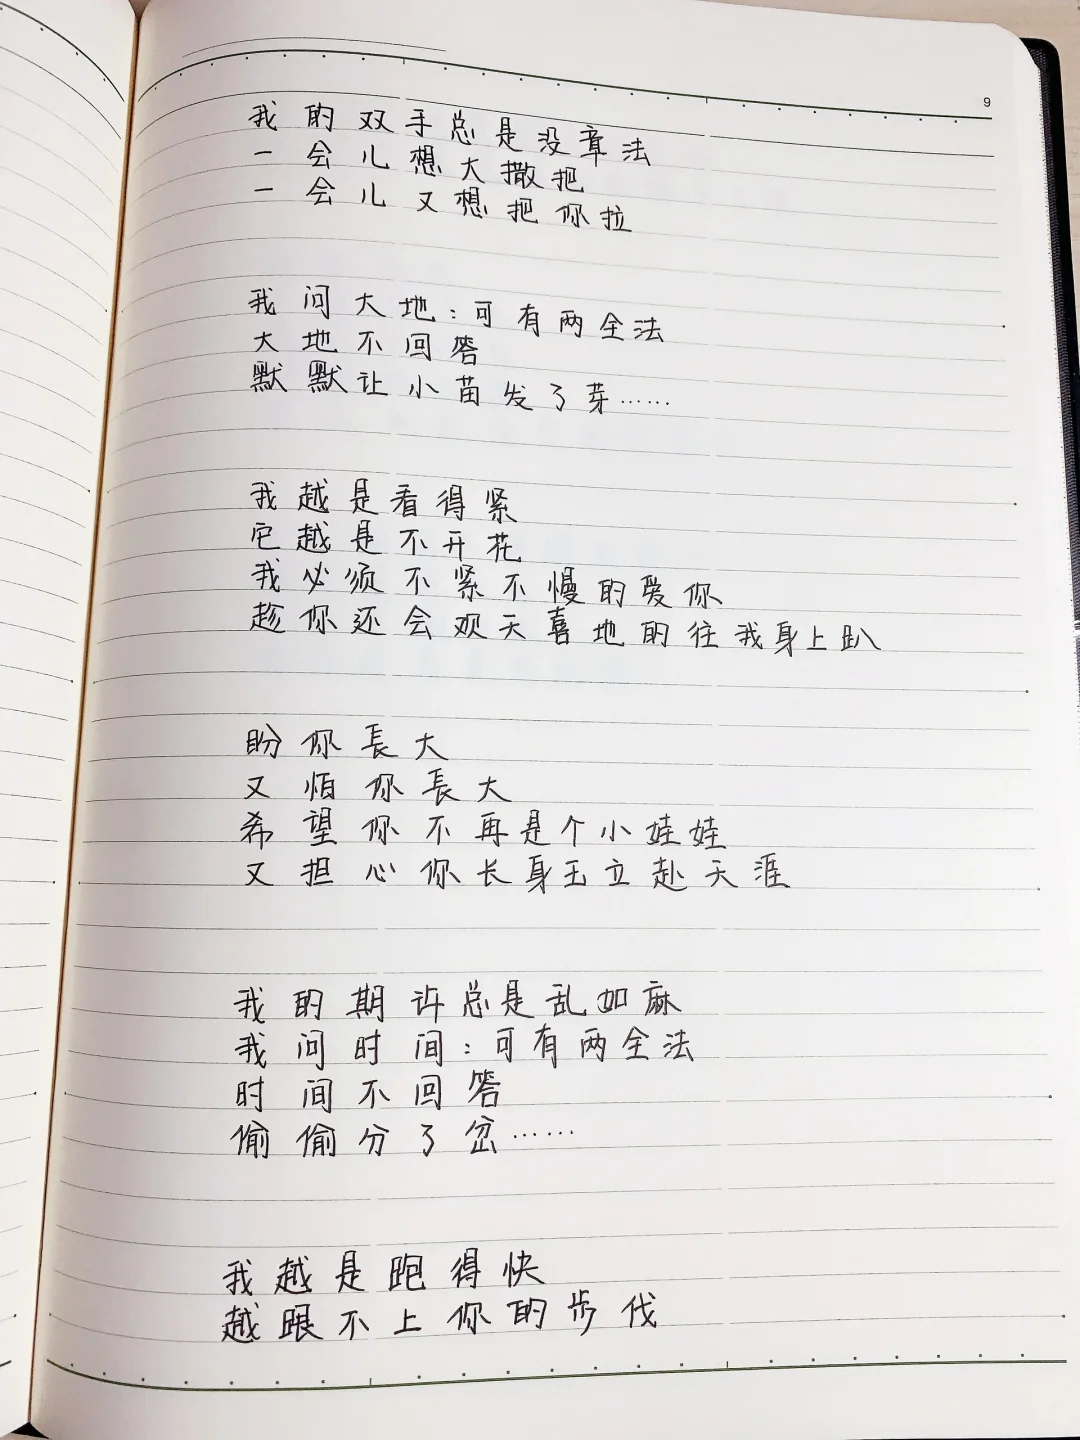 9
我的双手总是没章法
一会儿想大撒把
一会儿又想把你拉
我问大地:可有两全法
大地不回答
默默让小苗发了芽……
我越是看得紧
它越是不开花
我必须不紧不慢的爱你
趁你还会欢天喜地的往我身上趴
盼你長大
又怕你長大
希望你不再是个小娃娃
又担心你长身玉立赴天涯
我的期许总是乱如麻
我问时间:可有两全法
时间不回答
偷偷分了岔……
我越是跑得快
越跟不上你的步伐